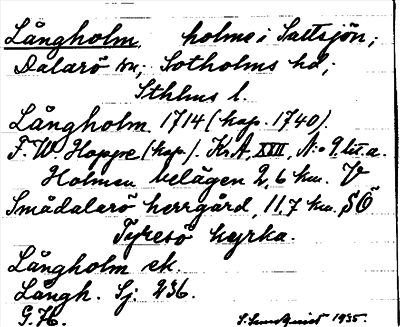 Långholm, holme i Saltsjön;
Dalarö sn; Sotholms hd;
Sthlms l.
Långholm 1714 (kop. 1740).
F. W. Hoppe (kop.). KrA, XXII, N:o 9 litt a.
Holmen belägen 2,6 km. V
Smådalarö herrgård, 11,7 km. SÖ
Tyresö kyrka.
Långholm ek.
Långh. Sj: 236.
G. H. S. Sundquist 1935.